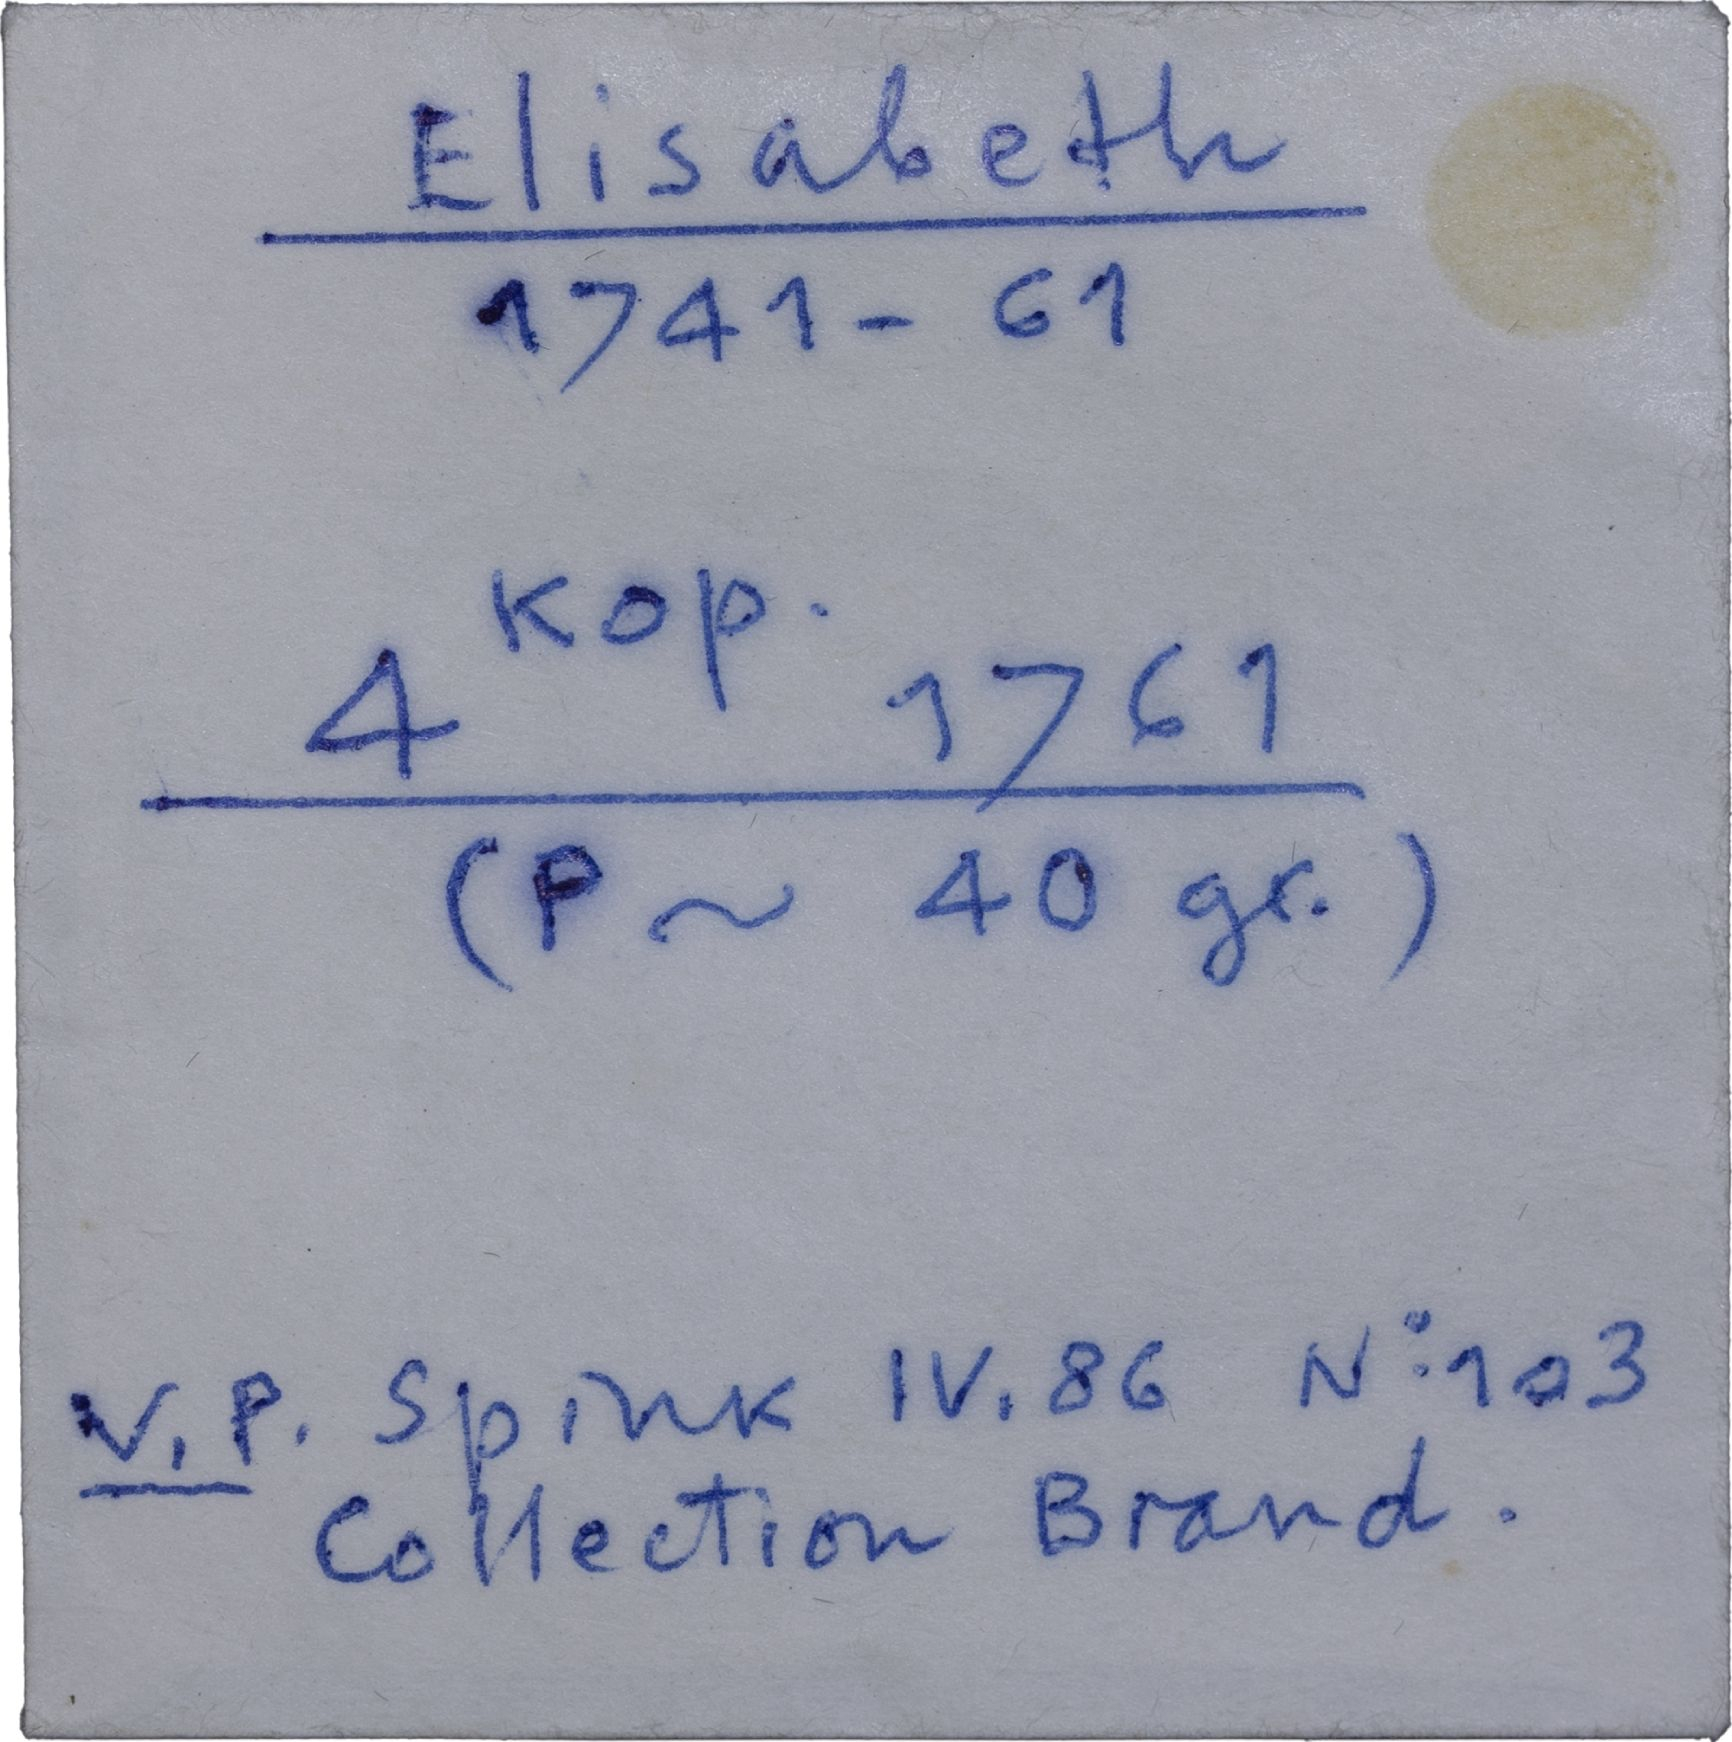 Elisabeth
1741-61
4 Kop. 1761
(P ~ 40 gr.)
V.P. Spink IV.86 N° 103
Collection Brand.